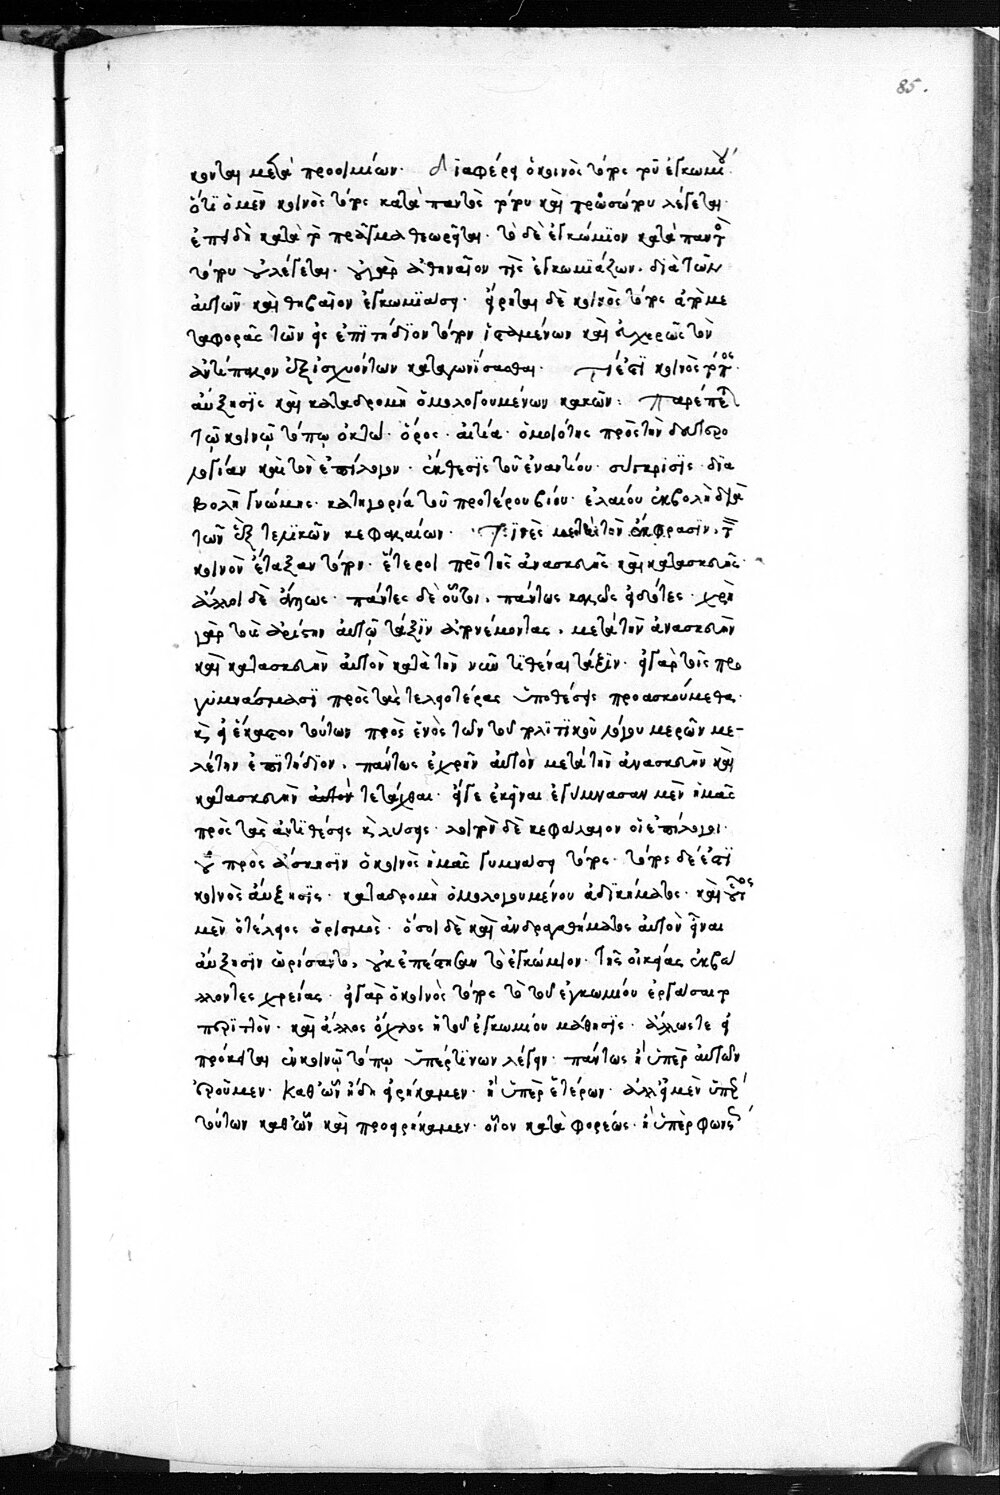 85.
κονται μετὰ προοιμίων· Διαφέρει ὁ κοινὸς τόπος τοῦ ἐγκωμίου·
ὅτι ὁ μὲν κοινὸς τόπος κατὰ παντὸς τόπου καὶ προσώπου λέγεται·
ἐπειδὴ κατὰ τὸ πρᾶγμα θεωρεῖται· τὸ δὲ ἐγκώμιον κατὰ παντὸς
τόπου οὐ λέγεται· οὐ γὰρ ἀθηναῖον τὶς ἐγκωμιάζων, διὰ τῶν
αὐτῶν καὶ θηβαῖον ἐγκωμιάσει· εἴρηται δὲ κοινὸς τόπος ἀπὸ με
ταφορᾶς τῶν εἰς ἐπιτήδειον τόπον ἱσταμένων καὶ εὐχερῶς τὸν
ἀντίπαλον ἐξισχυόντων καταγωνίσασθαι· Τί ἐστὶ κοινὸς τόπος·
αὔξησις καὶ καταδρομὴ ὁμολογουμένων κακῶν: Παρέπεται
τῷ κοινῷ τόπῳ ὀκτώ· ὅρος· αἰτία· ὁμοιότης πρὸς τὴν δευτερο
λογίαν καὶ τὸν ἐπίλογον· ἔκθεσις τοῦ ἐναντίου· σύγκρισις· δια
βολὴ γνώμης· κατηγορία τοῦ προτέρου βίου· ἐλαίου ἐκβολὴ διὰ
τῶν ἓξ τελικῶν κεφαλαίων· Τινὲς μετὰ τὴν ἔκφρασιν, τὸν
κοινὸν ἔταξαν τόπον· ἕτεροι πρὸ τῆς ἀνασκευῆς καὶ κατασκευῆς·
ἄλλοι δὲ ἄλλως· πάντες δὲ οὗτοι, πάντως καλῶς εἰδότες· χρὴ
γὰρ τοὺς ἀρίστην αὐτῷ τάξιν ἀπονέμοντας, μετὰ τὴν ἀνασκευὴν
καὶ κατασκευὴν αὐτὸν κατὰ τὴν νῦν τιθέναι τάξιν· εἰ γὰρ τοῖς προ
γυμνάσμασι πρὸς τὰς τελειοτέρας ὑποθέσεις προασκούμεθα·
καὶ εἰ ἕκαστον τούτων πρὸς ἑνὸς τῶν τοῦ πολιτικοῦ λόγου μερῶν με-
λέτην ἐπιτήδειον, πάντως ἐχρῆν αὐτὸν μετὰ τὴν ἀνασκευὴν καὶ
κατασκευὴν αὐτὸν τετάχθαι· εἴγε ἐκεῖναι ἐγύμνασαν μὲν ἡμᾶς
πρὸς τὰς ἀντιθέσεις καὶ λύσεις· λοιπὸν δὲ κεφάλαιον οἱ ἐπίλογοι·
οὗ πρὸς ἄσκησιν ὁ κοινὸς ἡμᾶς γυμνάσει τόπος· τόπος δέ ἐστι
κοινὸς αὔξησις· καταδρομὴ ὁμολογουμένου ἀδικήματος· καὶ οὗτος
μὲν ὁ τέλειος ὁρισμός· ὅσοι δὲ καὶ ἀνδραγαθήματος αὐτὸν εἶναι
αὔξησιν ὡρίσαντο, οὐκ ἐπέστησαν τὸ ἐγκώμιον τῆς οἰκείας ἐκβάλ
λοντες χρείας· εἰ γὰρ ὁ κοινὸς τόπος τὸ τοῦ ἐγκωμίου ἐργάσαιτο
περιττὸν· καὶ ἄλλος ὄχλος ἡ τοῦ ἐγκωμίου μάθησις· ἄλλως τε εἰ
πρόκειται ἐν κοινῷ τόπῳ ὑπέρ τινων λέγειν· πάντως ἢ ὑπὲρ αὐτῶν
ἐροῦμεν· καθ' ὧν ἤδη εἰρήκαμεν· ἢ ὑπὲρ ἑτέρων· ἀλλ' εἰ μὲν ὑπὲρ
τούτων καθ' ὧν καὶ προειρήκαμεν· οἷον κατὰ φονέως· ἢ ὑπὲρ φονέως